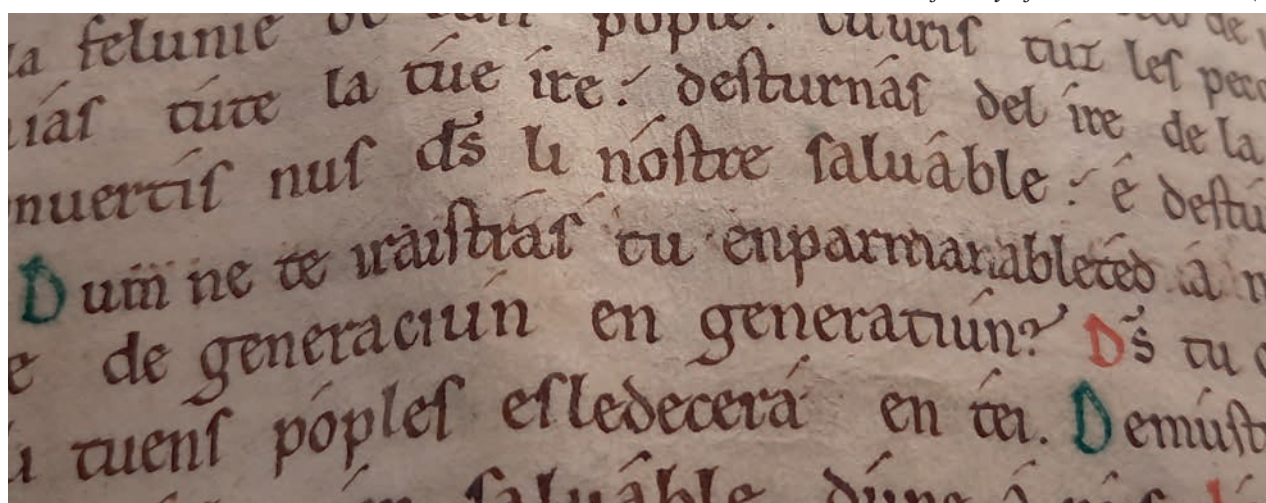 la felunie de tun pople. cuueris tuz les pecc
iás tute la túe ire: desturnás del ire de la
nuertis nus ds li nóstre saluáble: é destú
Dum ne te iraistrás tu enparmanábleted á n
e de generaciún en generatiún? Ds tu
tuens póples esledecerá en téi. Demúst
saluáble dúne á